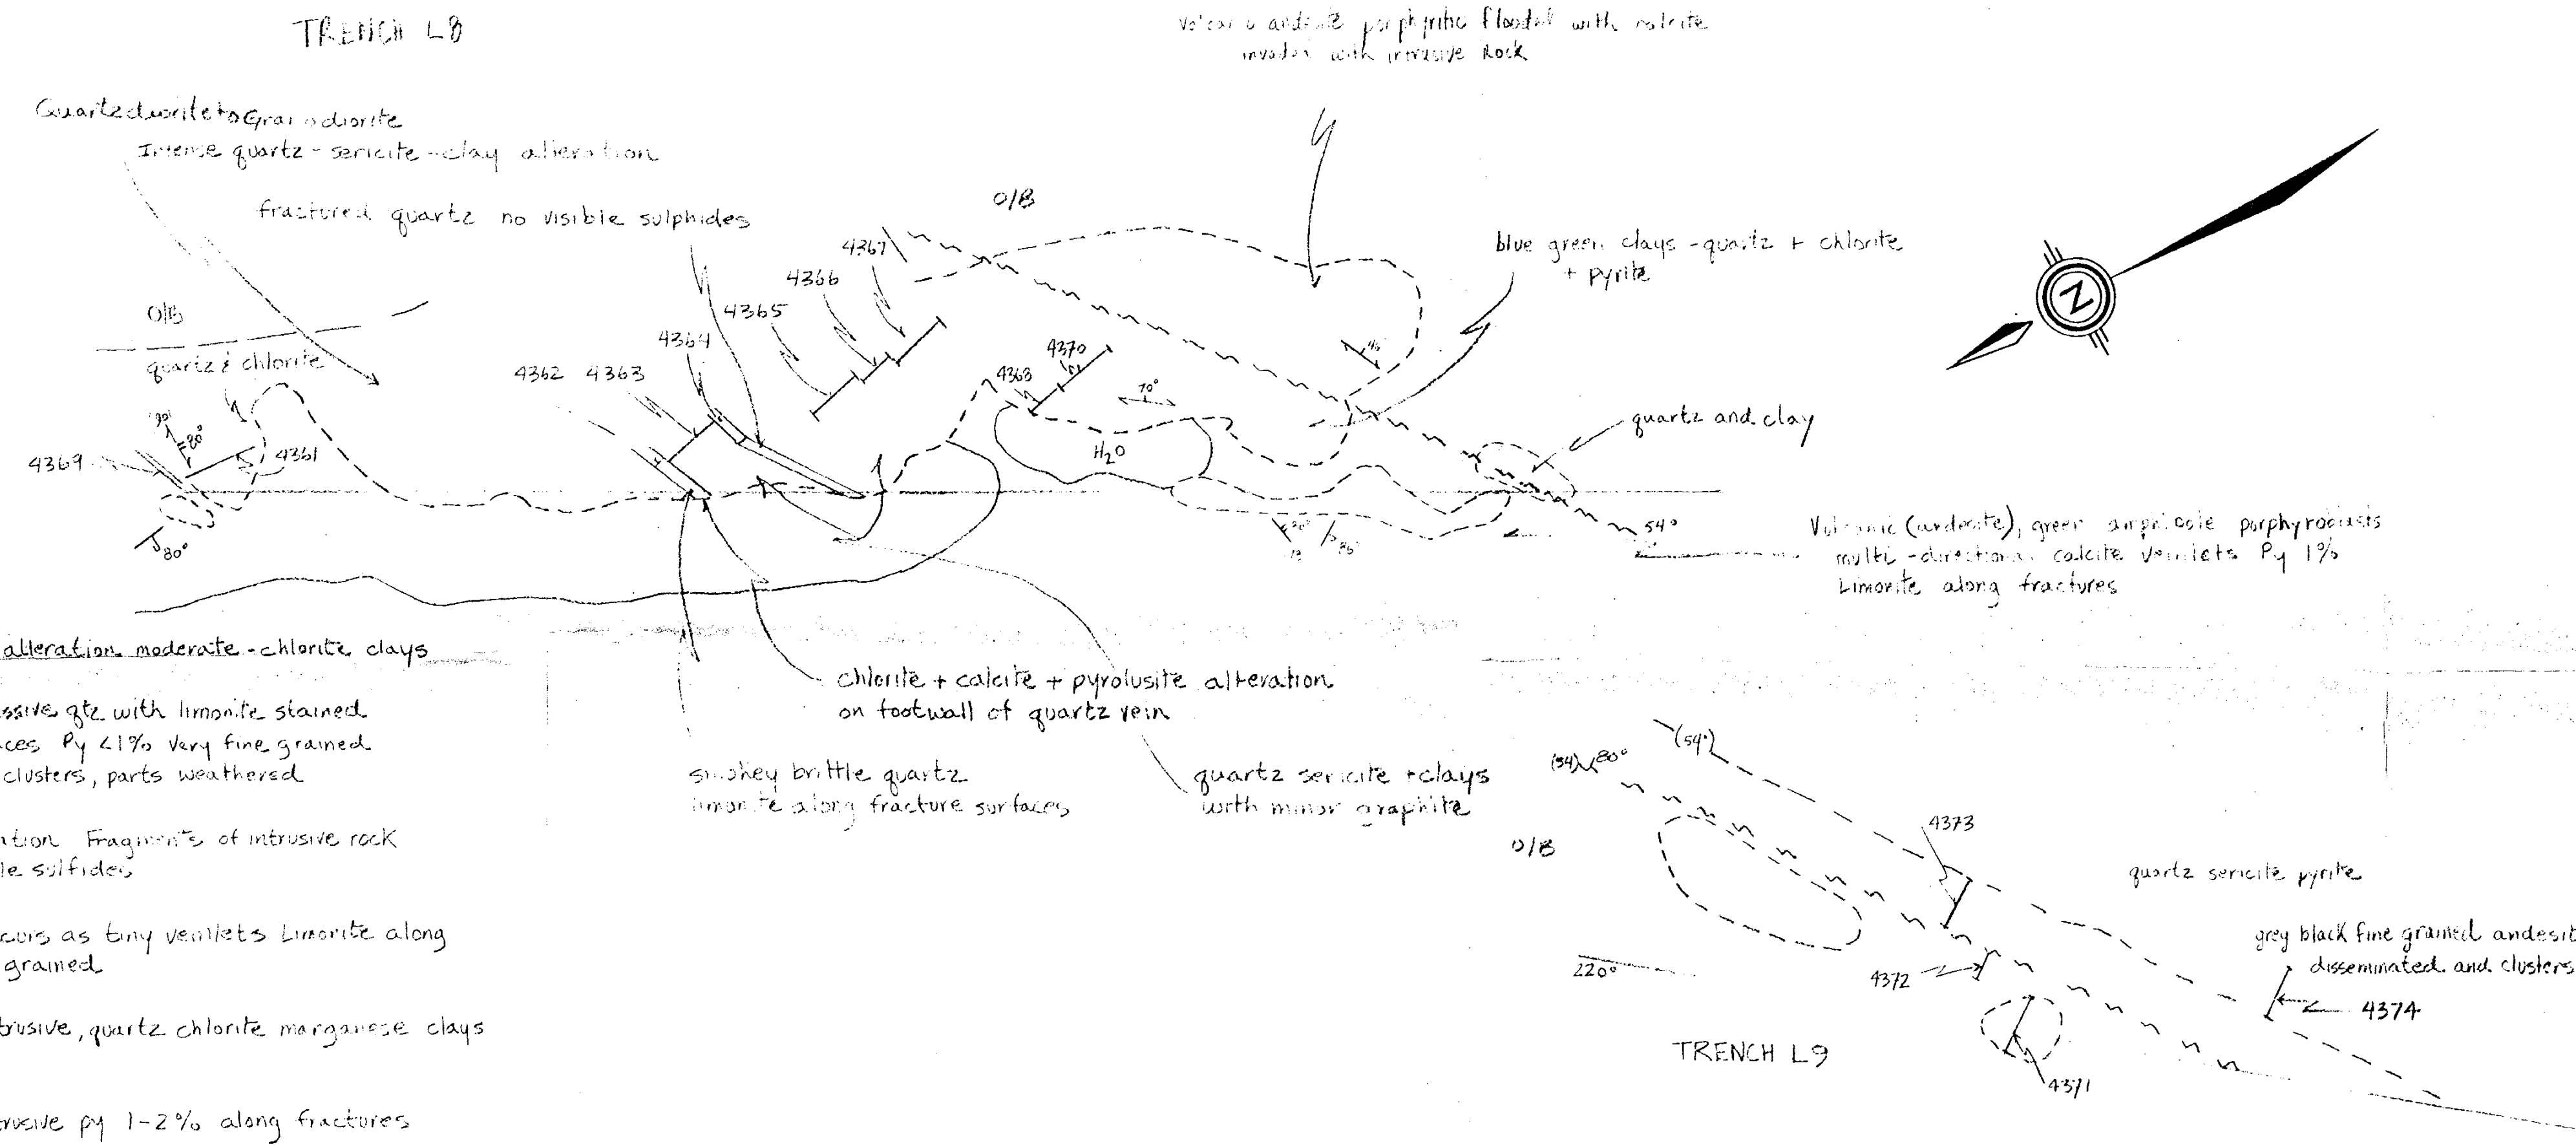 TRENCH L8
Volcanic andesite porphyritic flooded with calcite
invaded with intrusive Rock
Quartzdiorite to Granodiorite
Intense quartz - sericite - clay alteration
fractured quartz no visible sulphides
O/B
4367
4366
4365
4364
4362 4363
blue green clays - quartz + chlorite
+ pyrite
O/B
quartz & chlorite
80°
4369
4361
80°
4370
4368
70°
H2O
N
quartz and clay
54°
Volcanic (andesite), green amphibole porphyroblasts
multi-directional calcite veinlets Py 1%
Limonite along fractures
alteration moderate - chlorite clays
ssive qtz with limonite stained
ces Py <1% very fine grained
clusters, parts weathered
ation Fragments of intrusive rock
le sulfides
curs as tiny veinlets Limonite along
grained
trusive, quartz chlorite manganese clays
trusive py 1-2% along fractures
chlorite + calcite + pyrolusite alteration
on footwall of quartz vein
smokey brittle quartz
limonite along fracture surfaces
quartz sericite + clays
with minor graphite
(54°)
(54) 80°
O/B
4373
quartz sericite pyrite
grey black fine grained andesit
disseminated and clusters
4374
220°
4372
TRENCH L9
4371